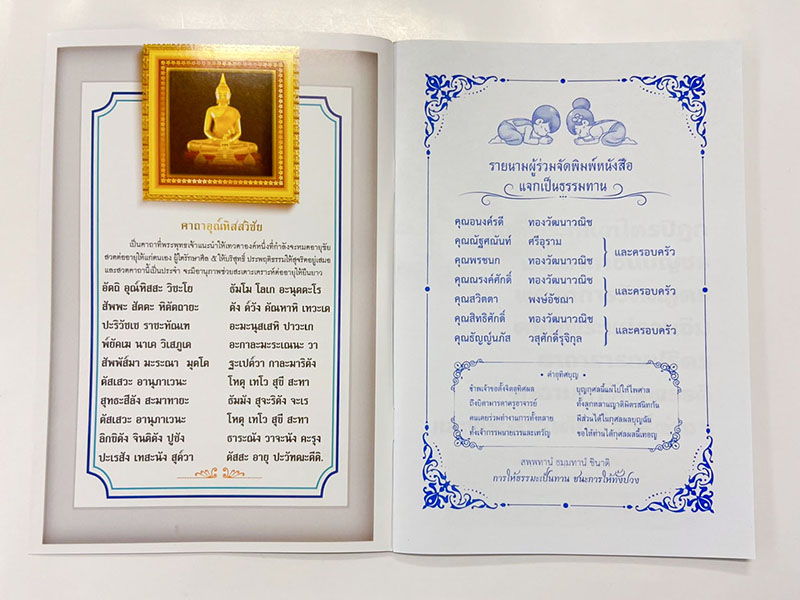 คาถาอุณหิสสวิชัย
เป็นคาถาที่พระพุทธเจ้าแนะนำให้เทวดาองค์หนึ่งที่กำลังจะหมดอายุขัย
สวดต่ออายุให้แก่ตนเอง ผู้ใดรักษาศีล ๕ ให้บริสุทธิ์ ประพฤติธรรมให้สุจริตอยู่เสมอ
และสวดคาถานี้เป็นประจำ จะมีอานุภาพช่วยสะเดาะเคราะห์ต่ออายุให้ยืนยาว
อัตถิ อุณหิสสะ วิชะโย ธัมโม โลเก อะนุตตะโร
สัพพะ สัตตะ หิตัตถายะ ตัง ต์วัง คัณหาหิ เทวะเต
ปะริวัชเช ราชะทัณเฑ อะมะนุสเสหิ ปาวะเก
พ์ยัคเฆ นาเค วิเสภูเต อะกาละมะระเณนะ วา
สัพพัส์มา มะระณา มุตโต ฐะเปต์วา กาละมาริตัง
ตัสเสวะ อานุภาเวนะ โหตุ เทโว สุขี สะทา
สุทธะสีลัง สะมาทายะ ธัมมัง สุจะริตัง จะเร
ตัสเสวะ อานุภาเวนะ โหตุ เทโว สุขี สะทา
ลิกขิตัง จินติตัง ปูชัง ธาระณัง วาจะนัง คะรุง
ปะเรสัง เทสะนัง สุต์วา ตัสสะ อายุ ปะวัฑฒะตีติ.
รายนามผู้ร่วมจัดพิมพ์หนังสือ
แจกเป็นธรรมทาน
คุณอนงค์รดี ทองวัฒนาวณิช
คุณณัฐศณันท์ ศรีอุราม
และครอบครัว
คุณพรชนก ทองวัฒนาวณิช
คุณณรงค์ศักดิ์ ทองวัฒนาวณิช
และครอบครัว
คุณสวิตตา พงษ์อัชฌา
คุณสิทธิศักดิ์ ทองวัฒนาวณิช
และครอบครัว
คุณธัญญ์นภัส วสุศักดิ์รุจิกุล
คำอุทิศบุญ
ข้าพเจ้าขอตั้งจิตอุทิศผล บุญกุศลนี้แผ่ไปให้ไพศาล
ถึงบิดามารดาครูอาจารย์ ทั้งลูกหลานญาติมิตรสนิทกัน
คนเคยร่วมทำงานการทั้งหลาย มีส่วนได้ในกุศลผลบุญฉัน
ทั้งเจ้ากรรมนายเวรและเทวัญ ขอให้ท่านได้กุศลผลนี้เทอญ
สพฺพทานํ ธมฺมทานํ ชินาติ
การให้ธรรมะเป็นทาน ชนะการให้ทั้งปวง